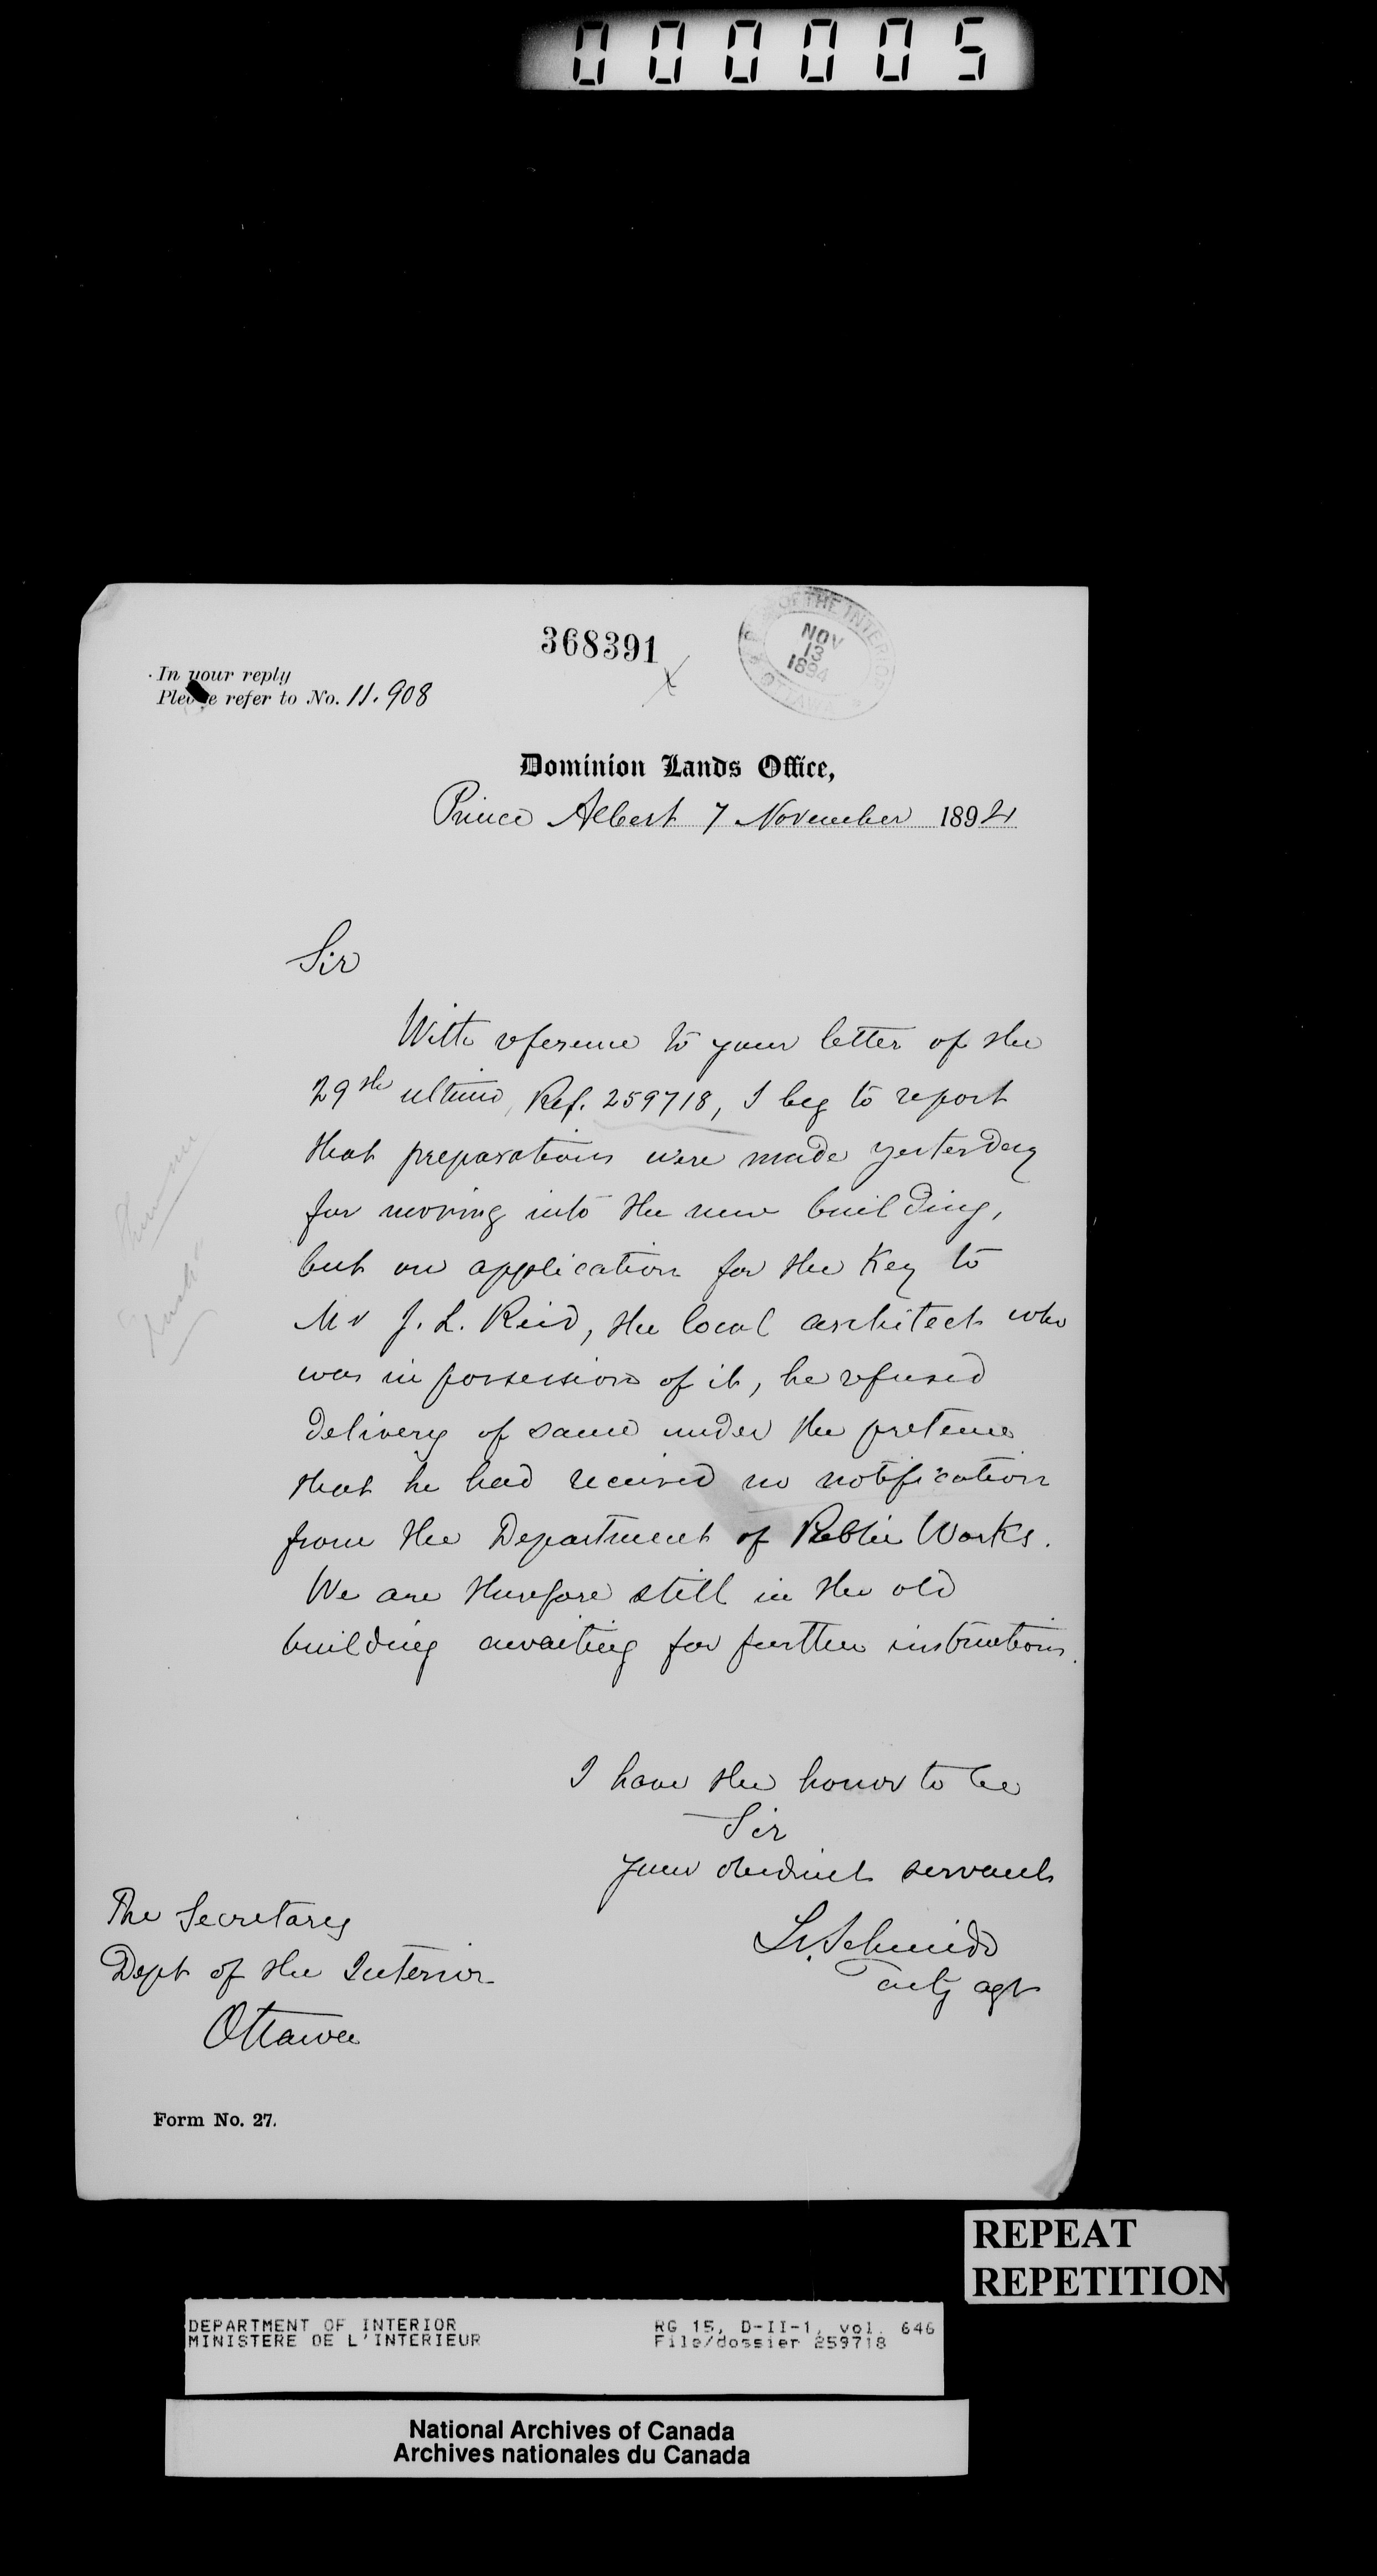 000005
368391
DEPT. OF THE INTERIOR
NOV
13
1894
OTTAWA
In your reply
Please refer to No. 11.908
Dominion Lands Office,
Prince Albert 7 November 1894
Sir
With reference to your letter of the
29th ultimo, Ref. 259718, I beg to report
that preparations were made yesterday
for moving into the new building,
but on application for the Key to
Mr J. L. Reid, the local architect who
was in possession of it, he refused
delivery of same under the pretence
that he had received no notification
from the Department of Public Works.
We are therefore still in the old
building awaiting for further instructions.
I have the honor to be
Sir
your obedient servant
L. Schmidt
actg agt
The Secretary
Dept of the Interior
Ottawa
Form No. 27.
REPEAT
REPETITION
DEPARTMENT OF INTERIOR
MINISTERE DE L'INTERIEUR
RG 15, D-II-1, vol. 646
File/dossier 259718
National Archives of Canada
Archives nationales du Canada